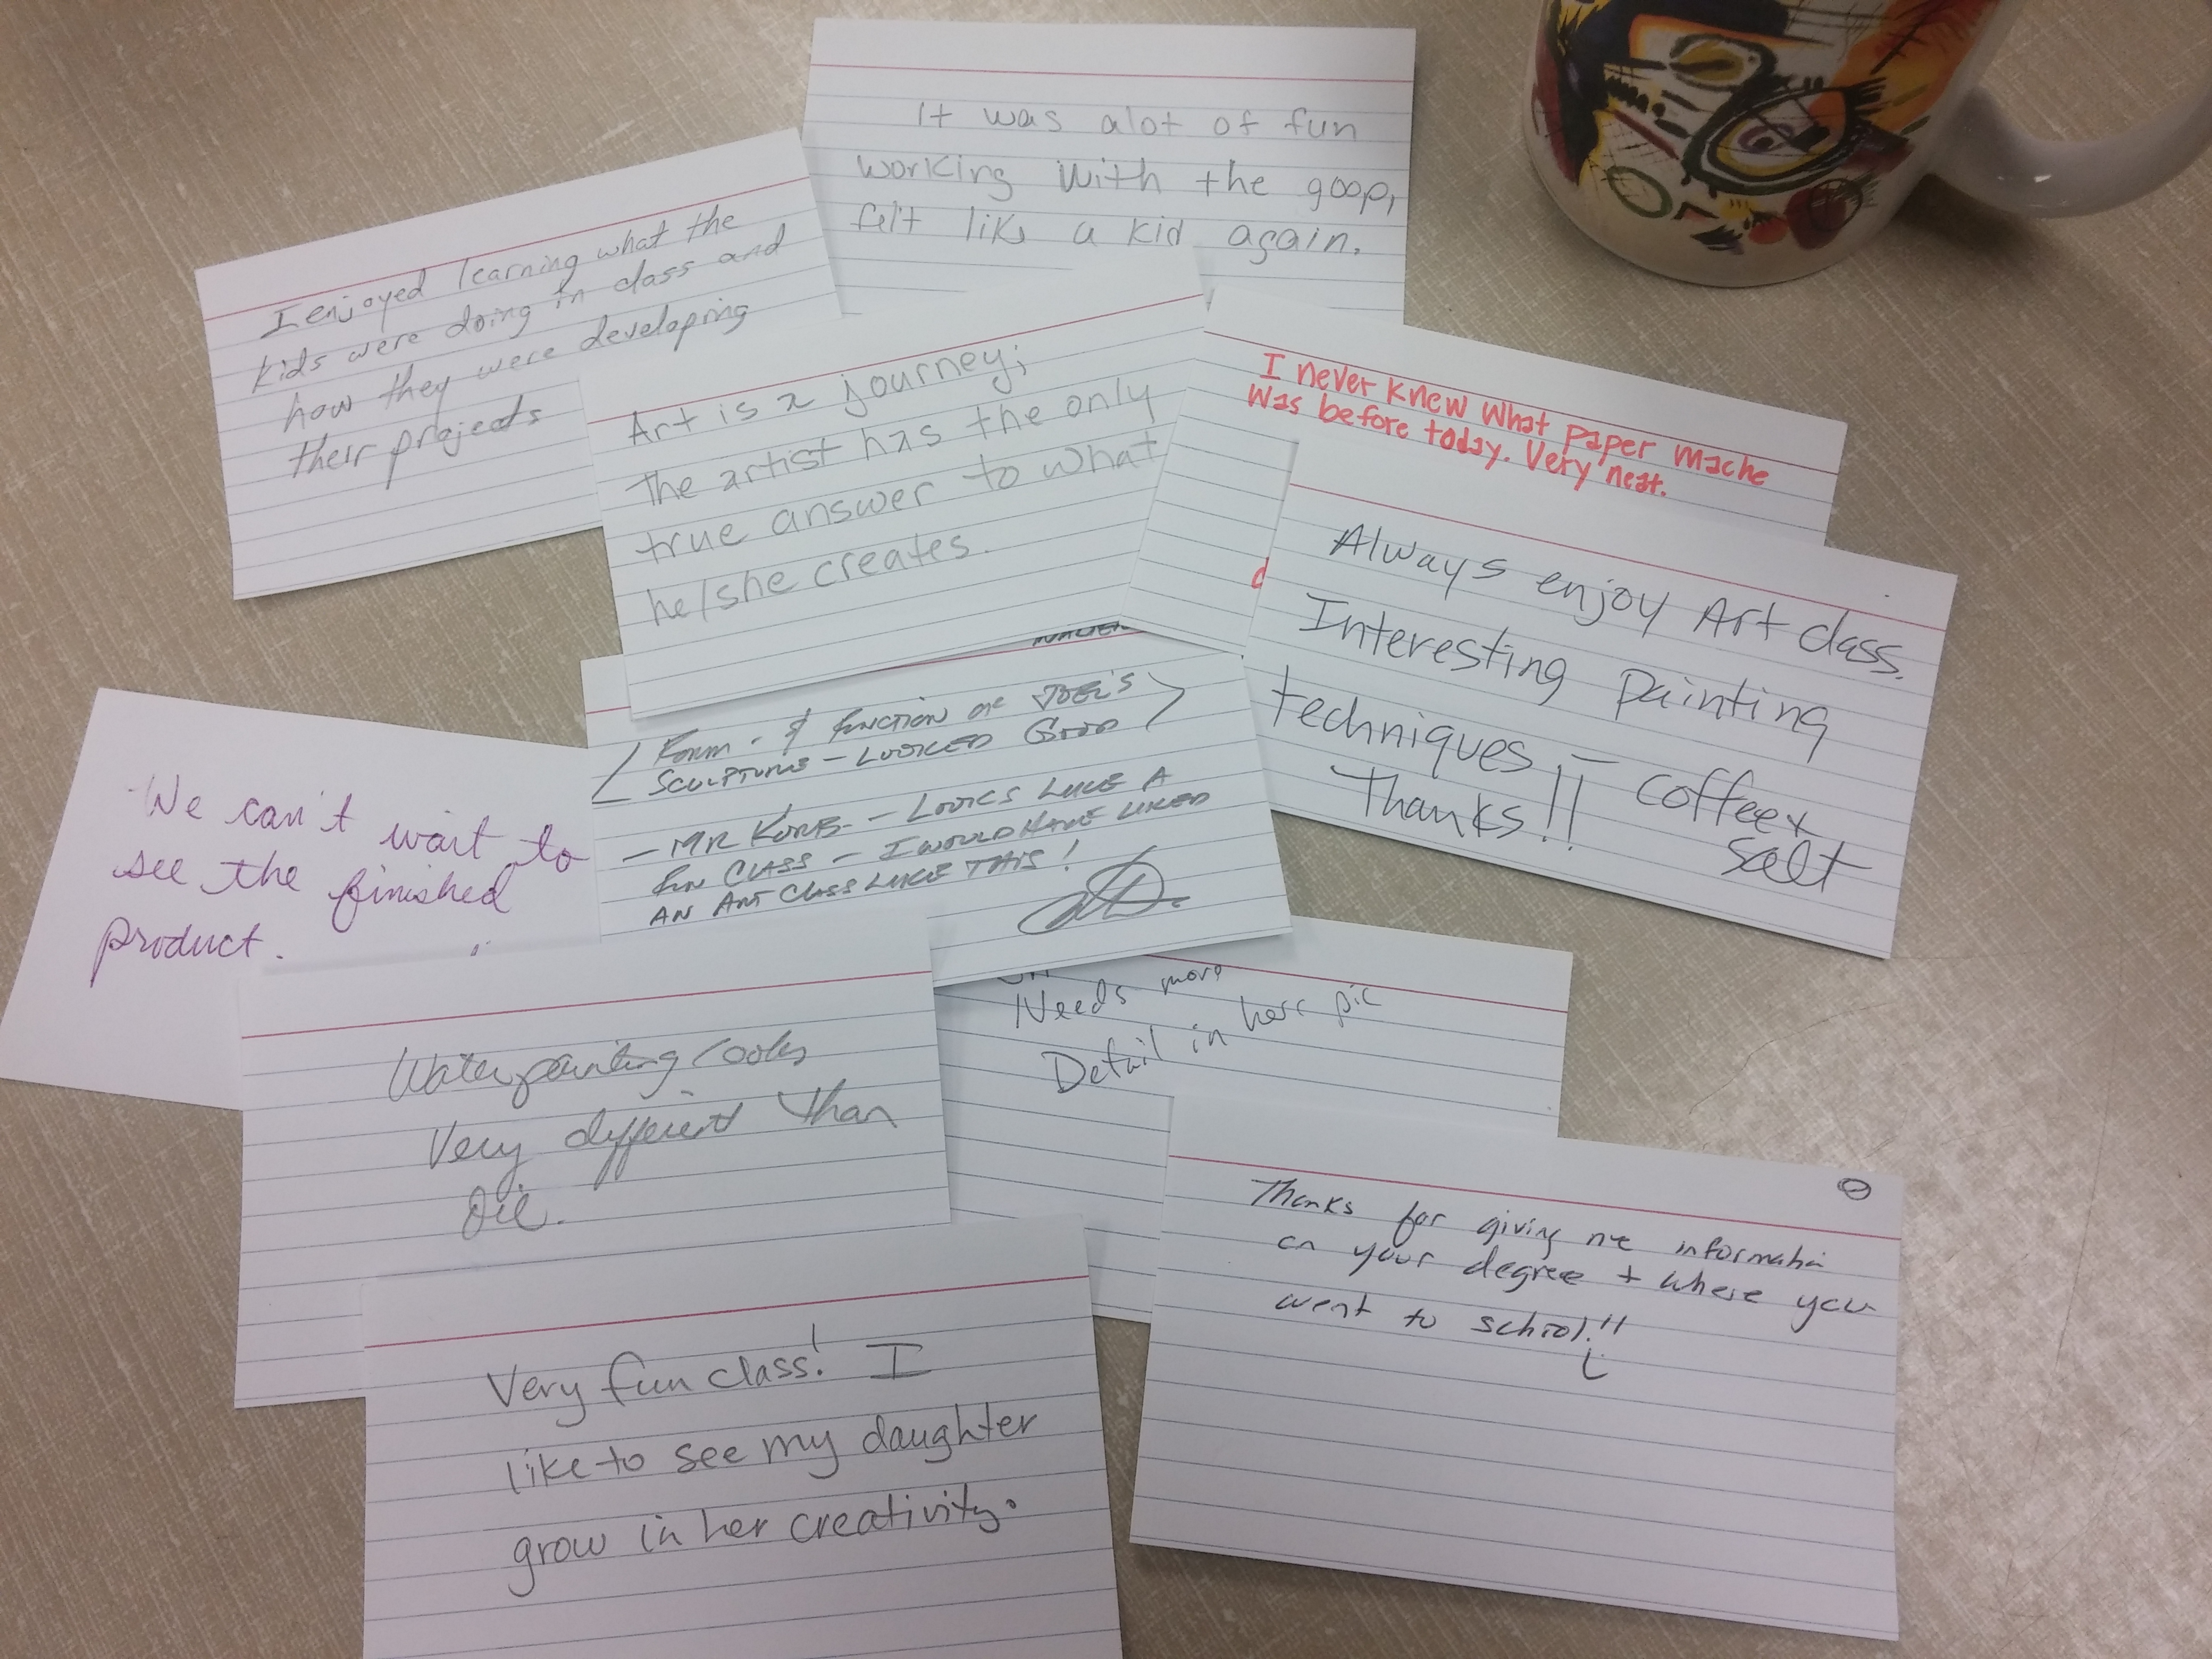 It was alot of fun
working with the goop,
felt like a kid again.
I enjoyed learning what the
kids were doing in class and
how they were developing
their projects
Art is a journey;
the artist has the only
true answer to what
he/she creates.
I never knew what paper mache
was before today. Very neat.
Always enjoy Art class.
Interesting Painting
techniques – coffee +
salt
Thanks!!
Form - & function on Joel's
Sculptures - Looked Good
- Mr Korb - Looks like a
fun class - I would have liked
an art class like this!
We can't wait to
see the finished
product.
Needs more
Detail in here pic
Water painting looks
Very different than
Oil.
Thanks for giving me informatin
on your degree + where you
went to school!!
Very fun class! I
like to see my daughter
grow in her creativity.